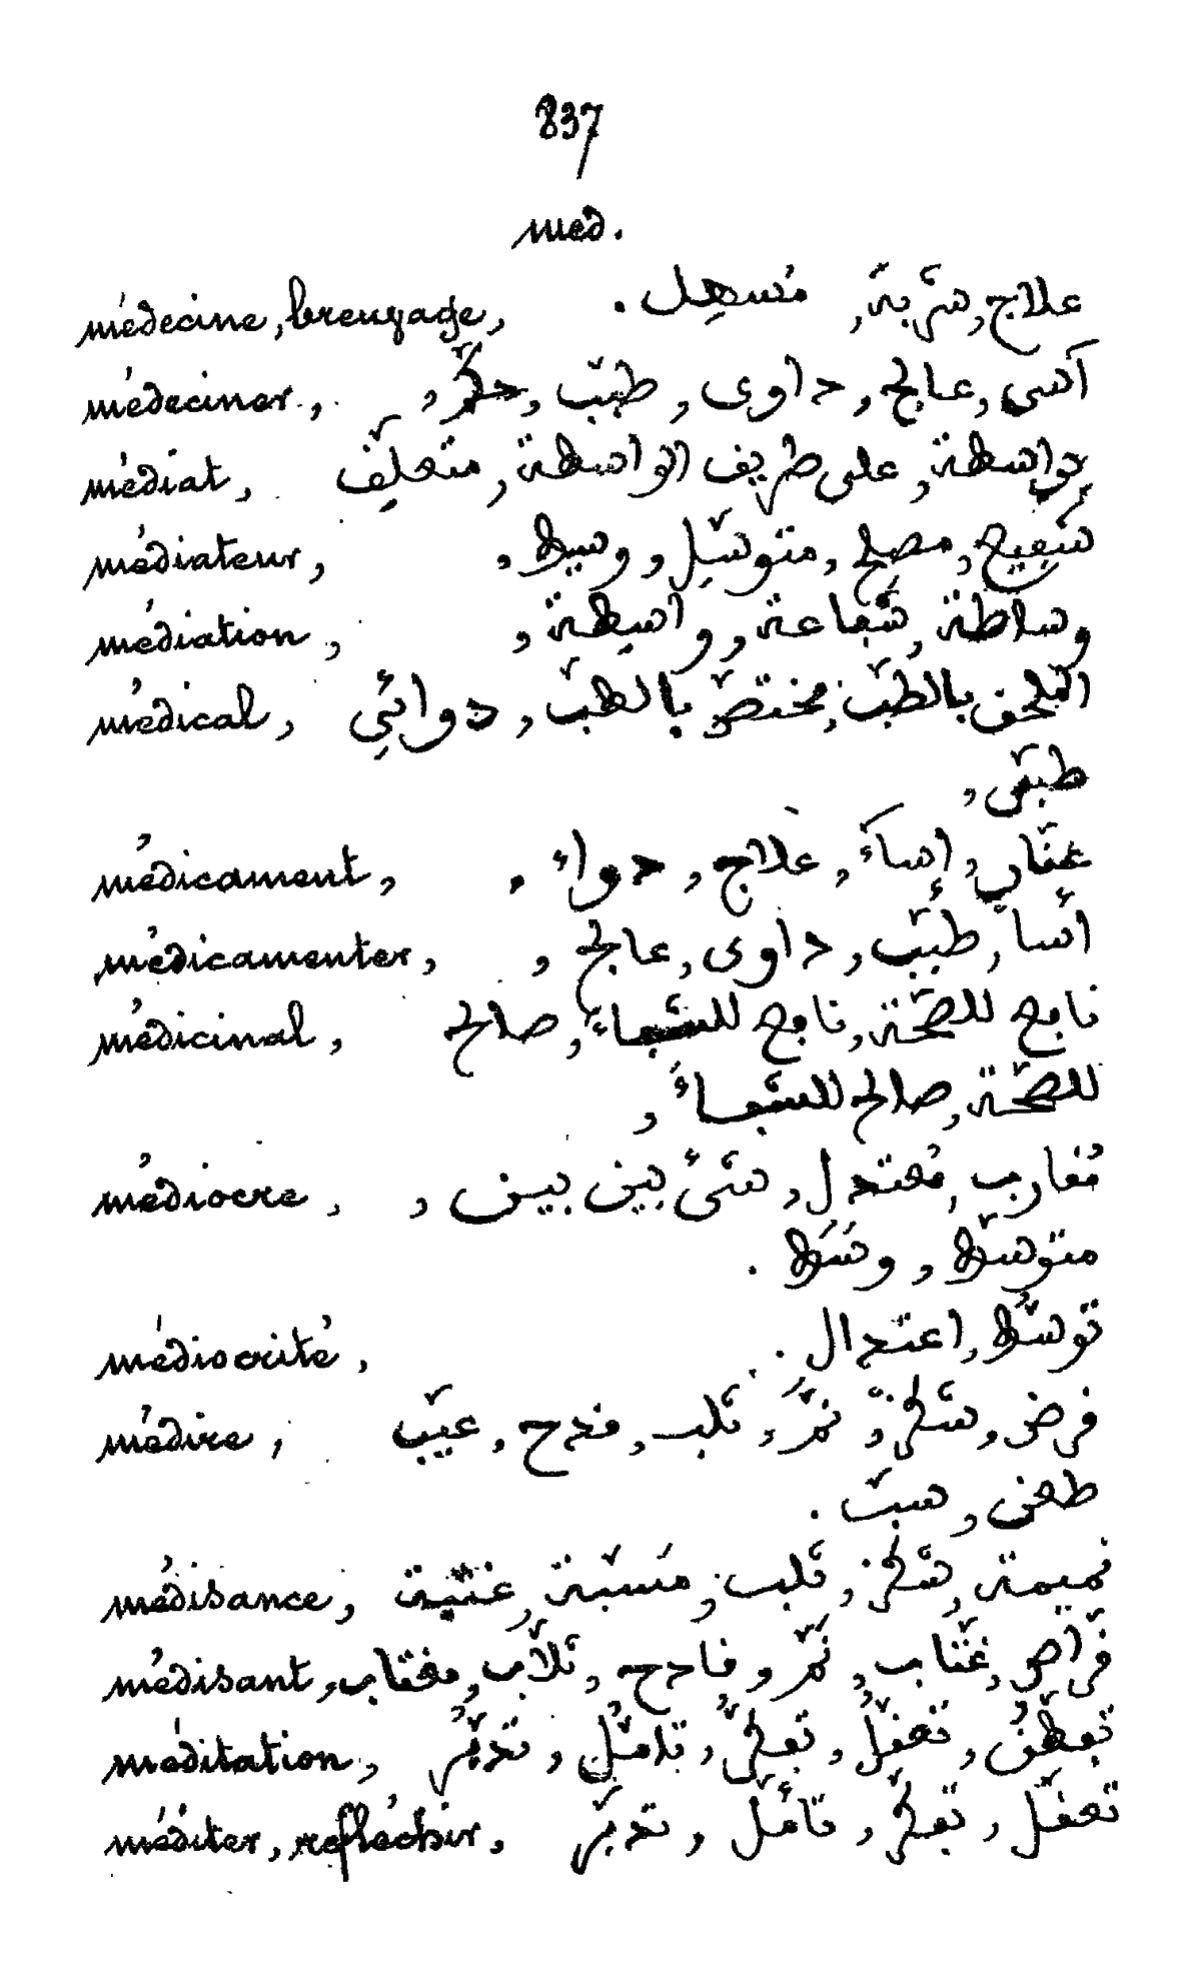 837
med.
médecine, breuvage, علاج, شربة, مُسهِل.
médeciner, آسى, عالج, داوى, طبّب,
médiat, بواسطة, على طريق الواسطة, متعلّق
médiateur, شَفِيع, مصلح, متوسّل, وسيط,
médiation, وساطة, شَفاعة, واسِطة,
médical, بالطبّ, مختصّ بالطبّ, دوائي,
طبّى,
médicament, إساءٌ, علاج, دواء,
médicamenter, أسا, طبّب, داوى, عالج,
médicinal, نافع للصّحّة, نافع للشّفاء, صالح
للصّحّة, صالح للشّفاء,
médiocre, مُقارب, مُعتدل, شىء بين بين,
متوسّط, وسَط.
médiocrité, توسُّط, اعتدال.
médire, قرض, ثلب, قدح, عيّب
طعن, سبّ.
médisance, نميمة, ثلب, مَسَبّة,
médisant, قرّاص, نمّر, قادح, ثلّاب, مغتاب,
méditation, تفطّن, تعقّل, تفكّر, تامّل, تدبّر
méditer, refléchir, تعقّل, تفكّر, تأمّل, تدبّر